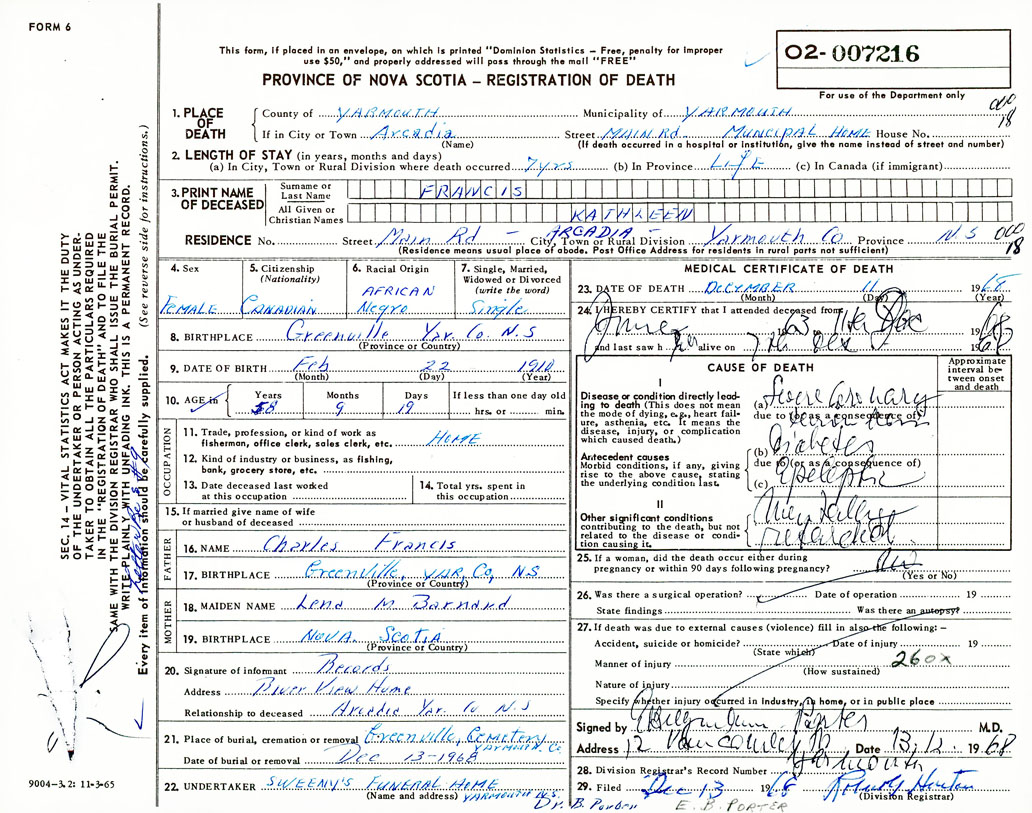 FORM 6
This form, if placed in an envelope, on which is printed "Dominion Statistics – Free, penalty for improper
use $50," and properly addressed will pass through the mail "FREE"
PROVINCE OF NOVA SCOTIA – REGISTRATION OF DEATH
02-007216
For use of the Department only
000
18
1. PLACE OF DEATH County of YARMOUTH Municipality of YARMOUTH
If in City or Town Arcadia Street MAIN Rd. MUNCIPAL HOME House No.
(Name) (If death occurred in a hospital or institution, give the name instead of street and number)
2. LENGTH OF STAY (in years, months and days)
(a) In City, Town or Rural Division where death occurred 7 yrs (b) In Province LIFE (c) In Canada (if immigrant)
3. PRINT NAME OF DECEASED
Surname or Last Name FRANCIS
All Given or Christian Names KATHLEEN
RESIDENCE No. Street Main Rd – ARCADIA – City, Town or Rural Division Yarmouth Co Province N.S
000
18
(Residence means usual place of abode. Post Office Address for residents in rural parts not sufficient)
4. Sex FEMALE
5. Citizenship (Nationality) CANADIAN
6. Racial Origin AFRICAN Negro
7. Single, Married, Widowed or Divorced (write the word) Single
8. BIRTHPLACE Greenville Yar. Co. N.S
(Province or Country)
9. DATE OF BIRTH Feb 22 1910
(Month) (Day) (Year)
10. AGE in Years 58 Months 9 Days 19 If less than one day old
hrs. or min.
OCCUPATION
11. Trade, profession, or kind of work as fisherman, office clerk, sales clerk, etc. HOME
12. Kind of industry or business, as fishing, bank, grocery store, etc.
13. Date deceased last worked at this occupation
14. Total yrs. spent in this occupation
15. If married give name of wife or husband of deceased
FATHER
16. NAME Charles Francis
17. BIRTHPLACE Greenville, YAR, Co, N.S
(Province or Country)
MOTHER
18. MAIDEN NAME Lena M Barnard
19. BIRTHPLACE NOVA SCOTIA
(Province or Country)
20. Signature of informant Records
Address River View Home
Relationship to deceased Arcadia Yar. Co N.S
21. Place of burial, cremation or removal Greenville, Cemetery
YARMOUTH, Co
Date of burial or removal Dec 13-1968
22. UNDERTAKER SWEENY'S FUNERAL HOME
(Name and address) YARMOUTH N.S.
MEDICAL CERTIFICATE OF DEATH
23. DATE OF DEATH DECEMBER 11 1968
(Month) (Day) (Year)
24. I HEREBY CERTIFY that I attended deceased from
June 1963 11th Dec 1968
and last saw h er alive on 7th Dec 1968
CAUSE OF DEATH
Approximate interval between onset and death
I
Disease or condition directly leading to death (This does not mean the mode of dying, e.g., heart failure, asthenia, etc. It means the disease, injury, or complication which caused death.)
(a) Severe Coronary
due to (or as a consequence of)
Antecedent causes
Morbid conditions, if any, giving rise to the above cause, stating the underlying condition last.
(b) Diabetes
due to (or as a consequence of)
(c) Epileptic
II
Other significant conditions contributing to the death, but not related to the disease or condition causing it.
Mentally
retarded
25. If a woman, did the death occur either during pregnancy or within 90 days following pregnancy?
(Yes or No)
26. Was there a surgical operation? Date of operation 19
State findings Was there an autopsy?
27. If death was due to external causes (violence) fill in also the following:–
Accident, suicide or homicide? Date of injury 19
(State which)
Manner of injury 260x
(How sustained)
Nature of injury
Specify whether injury occurred in Industry, in home, or in public place
Signed by Porter M.D.
Address 12 Vancouver St Date 13/12 1968
Yarmouth
28. Division Registrar's Record Number
29. Filed Dec 13 1968
(Division Registrar)
Dr. B. Porter
E. B. PORTER
SEC. 14 – VITAL STATISTICS ACT MAKES IT THE DUTY
OF THE UNDERTAKER OR PERSON ACTING AS UNDER-
TAKER TO OBTAIN ALL THE PARTICULARS REQUIRED
IN THE "REGISTRATION OF DEATH" AND TO FILE THE
SAME WITH THE DIVISION REGISTRAR WHO SHALL ISSUE THE BURIAL PERMIT.
WRITE PLAINLY WITH UNFADING INK. THIS IS A PERMANENT RECORD.
Every item of information should be carefully supplied. (See reverse side for instructions.)
9004–3.2: 11-3-65